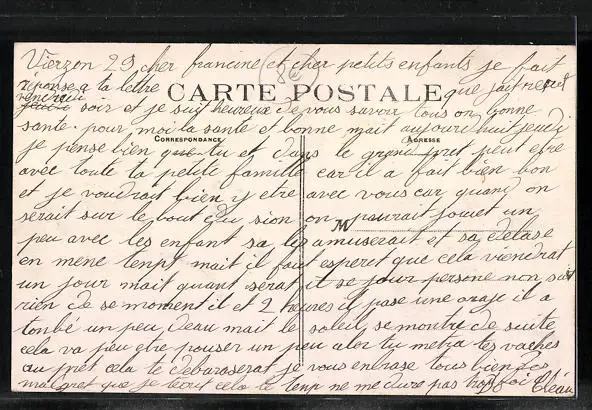 Vierzon 29 cher francine et cher petits enfants je fait
réponse a ta lettre que jait recut
vendredi soir et je suit heureux de vous savoir tous en bonne
CARTE POSTALE
sante. pour moi la sante et bonne mait aujourd huit jeudi
CORRESPONDANCE
ADRESSE
je pense bien que tu et dans le grand pret peut etre
avec toute ta petite famille car il a fait bien bon
et je voudrait bien y etre avec vous car quand on
serait sur le bout du sion on pourait jouer un
M
peu avec les enfant sa les amuserait et sa delase
en mene tenps mait il faut esperet que cela viendrat
un jour mait quant serat it se jour persone non sait
rien de se moment il et 2 heures il pase une oraje il a
tonbé un peu deau mait le soleil se montre de suite
cela va peu etre pouser un peu alor tu metra tes vaches
au pret cela te debaraserat je vous enbrase tous bien des
malgret que je tecrit cela le tenp ne me dure pas trop foi Cléau